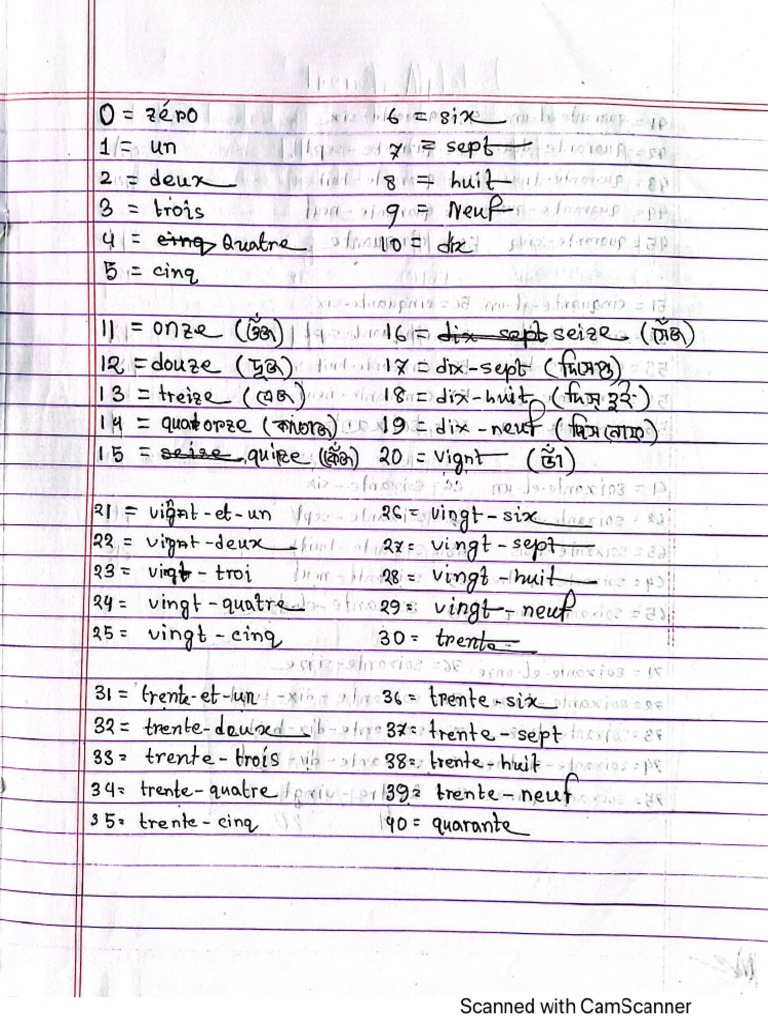 0 = zéro 6 = six
1 = un 7 = sept
2 = deux 8 = huit
3 = trois 9 = Neuf
4 = cinq Quatre 10 = dix
5 = cinq
11 = onze (উঁজ) 16 = dix sept seize (সেঁজ)
12 = douze (দুজ) 17 = dix-sept
13 = treize (ত্রেজ) 18 = dix-huit
14 = quatorze 19 = dix-neuf
15 = seize quize 20 = vignt (ভাঁ)
21 = vignt-et-un 26 = vingt-six
22 = vignt-deux 27 = vingt-sept
23 = - troi 28 = vingt-huit
24 = vingt-quatre 29 = vingt-neuf
25 = vingt-cinq 30 = trente
31 = trente-et-un 36 = trente-six
32 = trente-deux 37 = trente-sept
33 = trente-trois 38 = trente-huit
34 = trente-quatre 39 = trente-neuf
35 = trente-cinq 40 = quarante
Scanned with CamScanner